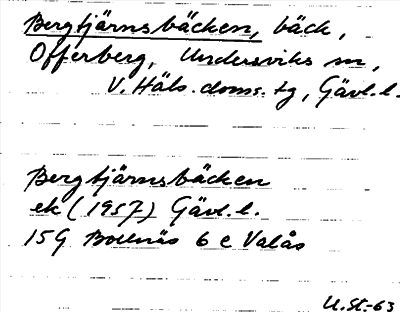 Bergtjärnsbäcken, bäck,
Offerberg, Undersviks sn,
V. Häls. doms. tg, Gävl. l.
Bergtjärnsbäcken
ek (1957) Gävl. l.
15G Bollnäs 6 e Valås
U. St.-63